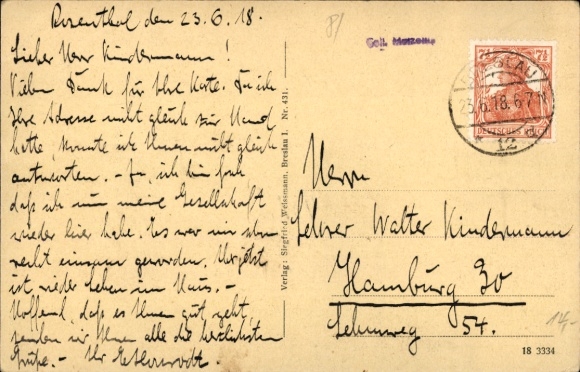 Rosenthal den 23.6.18.
Lieber Herr Kindermann!
Vielen Dank für Ihre Karte. Da ich
Ihre Adresse nicht gleich zur Hand
hatte, konnte ich Ihnen nicht gleich
antworten. - Ja, ich bin froh
daß ich nun meine Gesellschaft
wieder hier habe. Es war mir schon
recht einsam geworden. Aber jetzt
ist wieder Leben im Haus. -
Hoffend, daß es Ihnen gut geht,
senden wir Ihnen alle die herzlichsten
Grüße. - Ihr
Verlag: Siegfried Weissmann, Breslau I. Nr. 431.
Coll.
7½ 7½
DEUTSCHES REICH
BRESLAU
23.6.18.6-7N
12
Herrn
Lehrer Walter Kindermann
Hamburg 30
Lehmweg 54.
14,-
18 3334